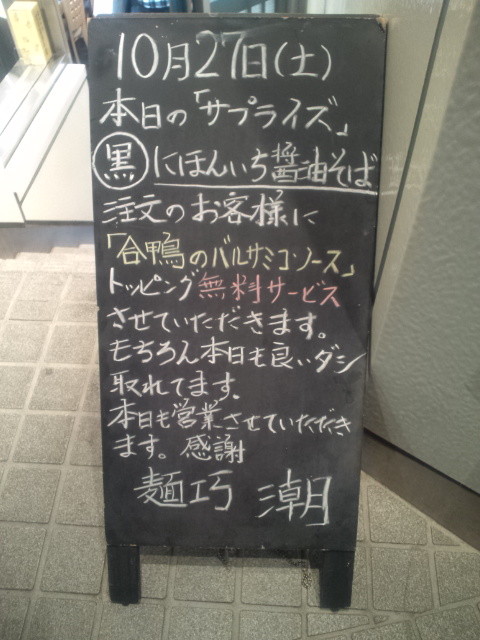 10月27日(土)
本日の「サプライズ」
黒にほんいち醤油そば
注文のお客様に
「合鴨のバルサミコソース」
トッピング無料サービス
させていただきます。
もちろん本日も良いダシ
取れてます。
本日も営業させていただき
ます。感謝
麺巧 潮